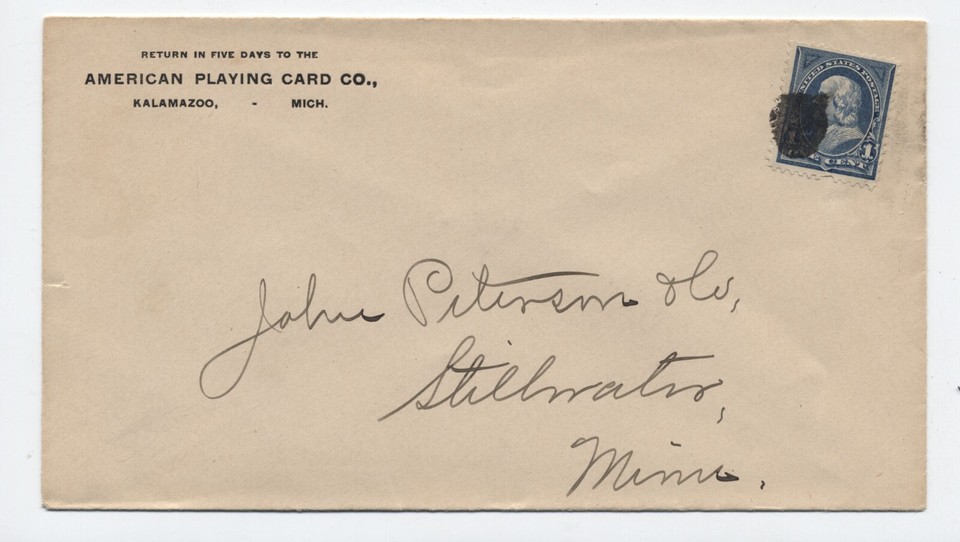 RETURN IN FIVE DAYS TO THE
AMERICAN PLAYING CARD CO.,
KALAMAZOO, - MICH.
UNITED STATES POSTAGE
1
CENT
John Peterson & Co,
Stillwater,
Minn.